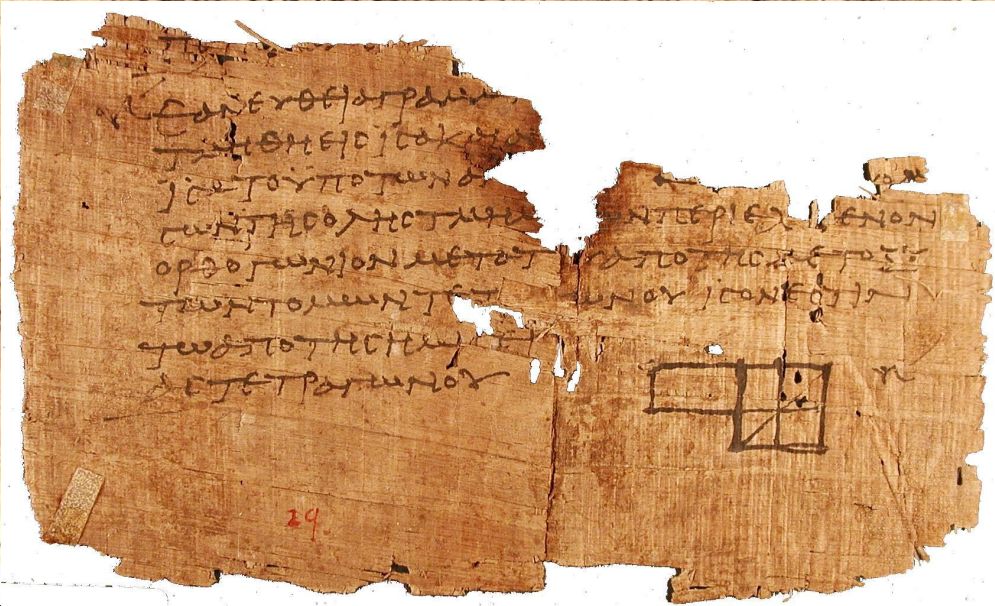 ΕΑΝΕΥΘΕΙΑΓΡΑΜ
ΤΜΗΘΗΕΙCΙCΑΚΑΙΑ
ΙCΑΤΟΥΠΟΤΩΝΑ
CΩΝΤΗCΟΛΗCΤΜΗΜ ΩΝΠΕΡΙΕΧΟΜΕΝΟΝ
ΟΡΘΟΓΩΝΙΟΝΜΕΤΑΤΟΥ ΑΠΟΤΗCΜΕΤΟΞΥ
ΤΩΝΤΟΜΩΝΤΕΤ ΩΝΟΥΙCΟΝΕCΤΙΝ
ΤΩΑΠΟΤΗCΗΜΙ
ΑCΤΕΤΡΑΓΩΝΟΥ
29